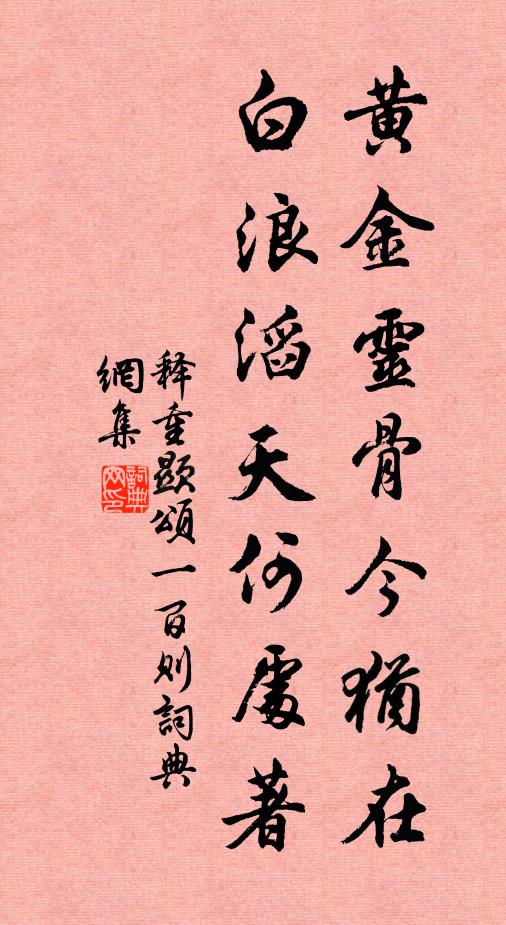 黄金靈骨今猶在
白浪滔天何處著
释重顯頌一百则詞典
網集
詞典
网印